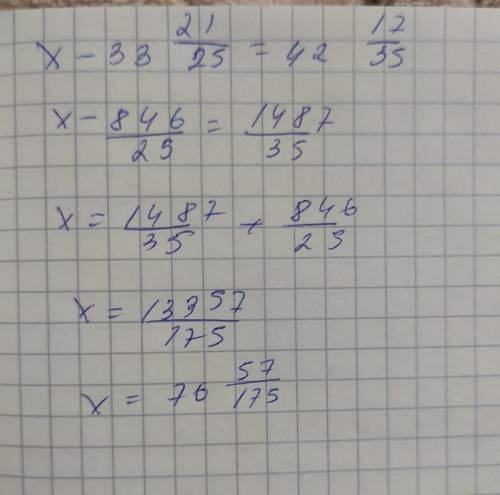 x - 33 21/25 = 42 17/35
x - 846/25 = 1487/35
x = 1487/35 + 846/25
x = 13357/175
x = 76 57/175